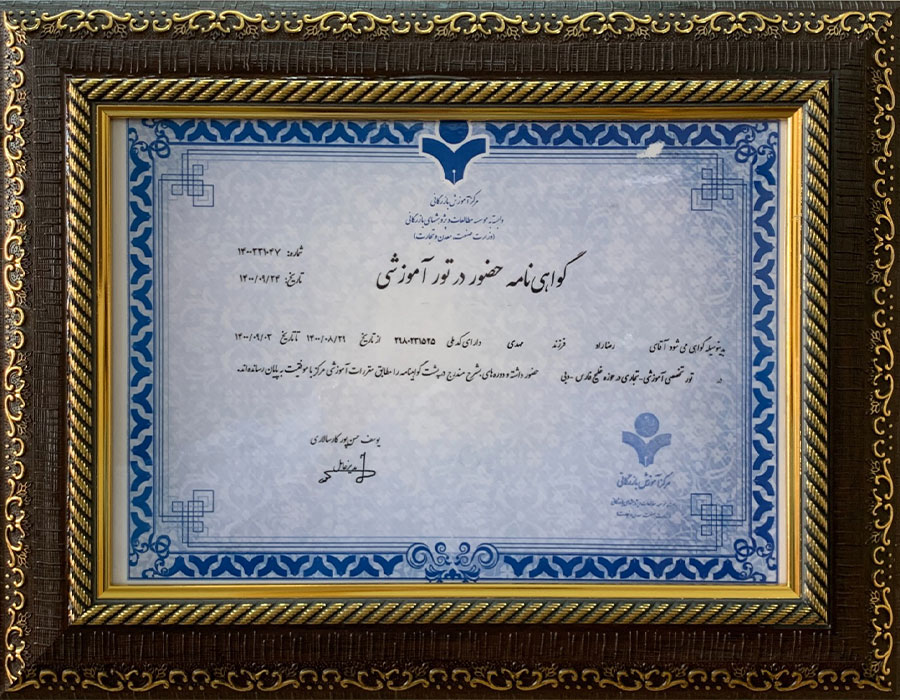 مرکز آموزش بازرگانی
وابسته به موسسه مطالعات و پژوهشهای بازرگانی
(وزارت صنعت، معدن و تجارت)
شماره: ۱۴۰۰۲۳۱۰۴۷
تاریخ: ۱۴۰۰/۰۹/۲۴
گواهی نامه حضور در تور آموزشی
بدینوسیله گواهی می شود آقای رضا راد فرزند مهدی دارای کد ملی ۲۹۸۰۲۳۱۵۲۵ از تاریخ ۱۴۰۰/۰۸/۲۹ تا تاریخ ۱۴۰۰/۰۹/۰۳
در تور تخصصی آموزشی - تجاری در حوزه خلیج فارس - دبی حضور داشته و دوره های بشرح مندرج در پشت گواهینامه را مطابق مقررات آموزشی مرکز با موفقیت به پایان رسانده اند.
یوسف حسن پور کارسالاری
مدیرعامل
مرکز آموزش بازرگانی